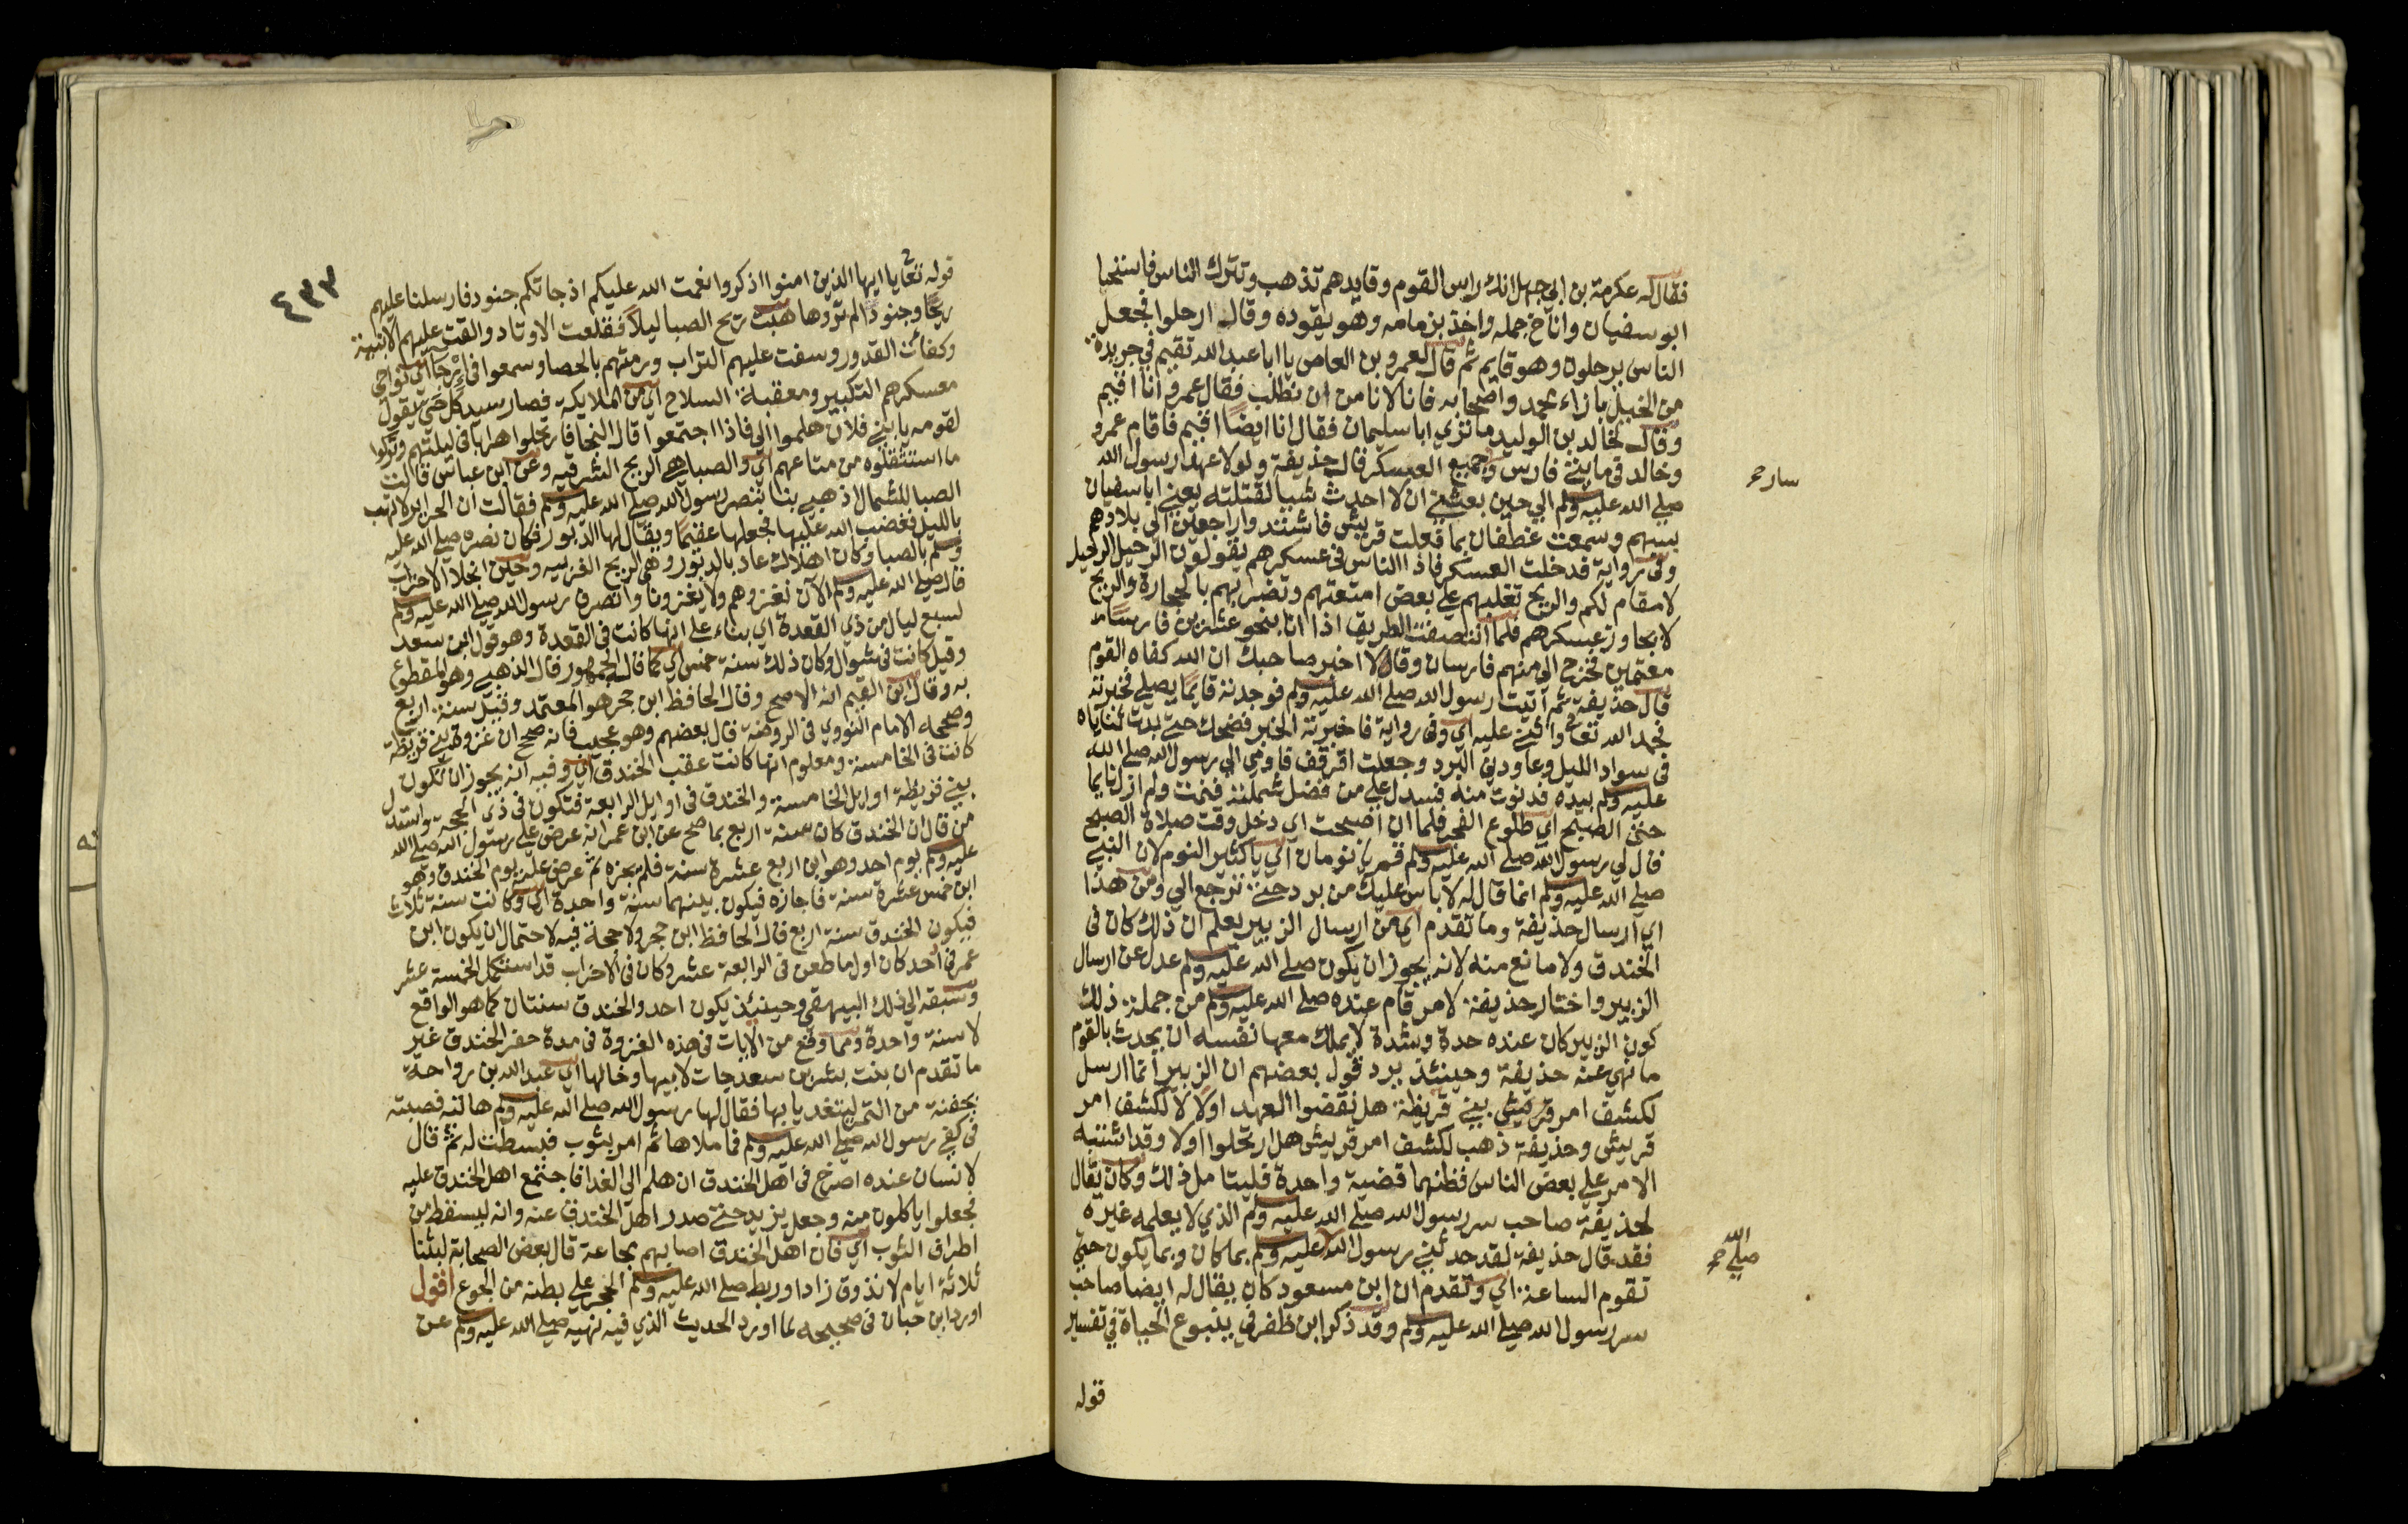 فقال له عكرمة بن ابي جهل انك راس القوم وقايدهم تذهب وتترك الناس فاستحيا
ابو سفيان واناخ جمله واخذ بزمامه وهو يقوده وقال ارحلوا فجعل
الناس يرحلون وهو قايم ثم قال لعمرو بن العاص يا ابا عبد الله نقيم في جريدة
من الخيل بازاء محمد واصحابه فانا لا نامن ان نطلب فقال عمرو انا اقيم
وقال لخالد بن الوليد ما تري ابا سليمان فقال انا ايضًا اقيم فاقام عمرو
وخالد في مايتي فارس وجميع العسكر قال حذيفة ولولا عهد رسول الله
سارح
صلي الله عليه وسلم الي حين بعثني ان لا احدث شيا لقتلته يعني ابا سفيان
بسهم وسمعت غطفان بما فعلت قريش فاشتدوا راجعين الي بلادهم
وفي رواية فدخلت العسكر فاذا الناس في عسكرهم يقولون الرحيل الرحيل
لا مقام لكم والريح تقلبهم علي بعض امتعتهم وتضربهم بالحجارة والريح
لا تجاوز عسكرهم فلما انتصفت الطريق اذا انا بنحو عشرين فارسًا
معتمين فخرج الي منهم فارسان وقالا اخبر صاحبك ان الله كفاه القوم
قال حذيفة ثم اتيت رسول الله صلي الله عليه وسلم فوجدته قايمًا يصلي فخبرته
فحمد الله تعالى واثني عليه اي وفي رواية فاخبرته الخبر فضحك حتي بدت ثناياه
في سواد الليل وعاودني البرد وجعلت اقرقف فاومي الي رسول الله صلي الله
عليه وسلم بيده فدنوت منه فسدل علي من فضل شملته فنمت ولم ازل نايما
حتي الصبح اي طلوع الفجر فلما ان اصبحت اي دخل وقت صلاة الصبح
قال لي رسول الله صلي الله عليه وسلم قم يا نومان اي يا كثير النوم لان النبي
صلي الله عليه وسلم انما قال له لا باس عليك من برد حتي ترجع الي ومن هذا
اي ارسال حذيفة وما تقدم اي من ارسال الزبير يعلم ان ذلك كان في
الخندق ولا مانع منه لانه يجوز ان يكون صلي الله عليه وسلم عدل عن ارسال
الزبير واختار حذيفة لامر قام عنده صلي الله عليه وسلم من جملة ذلك
كون الزبير كان عنده حدة وشدة لا يملك معها نفسه ان يحدث بالقوم
ما نهي عنه حذيفة وحينئذ يرد قول بعضهم ان الزبير انما ارسل
لكشف امر قريش بني قريظة هل نقضوا العهد اولا لا لكشف امر
قريش وحذيفة ذهب لكشف امر قريش هل ارتحلوا اولا وقد اشتبه
الامر علي بعض الناس فظنهما قضية واحدة فليتامل ذلك وكان يقال
لحذيفة صاحب سر رسول الله صلي الله عليه وسلم الذي لا يعلمه غيره
فقد قال حذيفة لقد حدثني رسول الله عليه وسلم بما كان وبما يكون حتي
صلي الله صح
تقوم الساعة اي وتقدم ان ابن مسعود كان يقال له ايضا صاحب
سر رسول الله صلي الله عليه وسلم وقد ذكر ابن ظفر في ينبوع الحياة في تفسير
قوله
٤٣٣
قوله تعالى يا ايها الذين امنوا اذكروا نعمت الله عليكم اذ جاتكم جنود فارسلنا عليهم
ريحًا وجنودًا لم تروها هبت ريح الصبا ليلًا فقلعت الاوتاد والقت عليهم الابنية
وكفات القدور وسفت عليهم التراب ورمتهم بالحصا وسمعوا في ارجاء اي نواحي
معسكرهم التكبير وقعقعة السلاح اي من الملايكة فصار سيد كل حي يقول
لقومه يا بني فلان هلموا الي فاذا اجتمعوا قال النجا فارتحلوا هرابا في ليلتهم وتركوا
ما استثقلوه من متاعهم اي والصبا هي الريح الشرقية وعن ابن عباس قالت
الصبا للشمال اذهبي بنا ننصر رسول الله صلي الله عليه وسلم فقالت ان الحراير لا تهب
بالليل فغضب الله عليها فجعلها عقيمًا ويقال لها الدبور فكان نصره صلي الله عليه
وسلم بالصبا وكان اهلاك عاد بالدبور وهي الريح الغربية وحين انجلا الاحزاب
قال صلي الله عليه وسلم الآن نغزوهم ولا يغزونا وانصرف رسول الله صلي الله عليه وسلم
لسبع ليال من ذي القعدة اي بناء علي انها كانت في القعدة وهو قول ابن سعد
وقيل كانت في شوال وكان ذلك سنة خمس اي كما قاله الجمهور قال الذهبي وهو المقطوع
به وقال ابن القيم انه الاصح وقال الحافظ ابن حجر هو المعتمد وقيل سنة اربع
وصححه الامام النووي في الروضة قال بعضهم وهو عجيب فانه صح ان غزوة بني قريظة
كانت في الخامسة ومعلوم انها كانت عقب الخندق اي وفيه انه يجوز ان تكون
بني قريظة اوايل الخامسة والخندق في اوايل الرابعة فتكون في ذي الحجة واستدل
من قال ان الخندق كان سنة اربع بما صح عن ابن عمر انه عرض علي رسول الله صلي الله
عليه وسلم يوم احد وهو ابن اربع عشرة سنة فلم يجزه ثم عرض عليه يوم الخندق وهو
ابن خمس عشرة سنة فاجازه فيكون بينهما سنة واحدة اي وكانت سنة ثلاث
فيكون الخندق سنة اربع قال الحافظ ابن حجر ولا حجة فيه لاحتمال ان يكون ابن
عمر في احد كان اول ما طعن في الرابعة عشر وكان في الاحزاب قد استكمل الخمسة عشر
وسبقه الي ذلك البيهقي وحينئذ يكون احد والخندق سنتان كما هو الواقع
لا سنة واحدة ومما وقع من الايات في هذه الغزوة في مدة حفر الخندق غير
ما تقدم ان بنت بشر بن سعد جات لابيها وخالها اي عبد الله بن رواحة
بحفنة من التمر ليتغديا بها فقال لها رسول الله صلي الله عليه وسلم هاتيه فصبته
في كفي رسول الله صلي الله عليه وسلم فما ملاها ثم امر بثوب فبسطت له ثم قال
لانسان عنده اصرخ في اهل الخندق ان هلم الي الغدا فاجتمع اهل الخندق عليه
فجعلوا ياكلون منه وجعل يزيد حتي صدر اهل الخندق عنه وانه ليسقط من
اطراف الثوب اي فان اهل الخندق اصابهم مجاعة قال بعض الصحابة لبثنا
ثلاثة ايام لا نذوق زادا وربط صلي الله عليه وسلم الحجر علي بطنه من الجوع اقول
اورد ابن حبان في صحيحه لما اورد الحديث الذي فيه نهيه صلي الله عليه وسلم عن